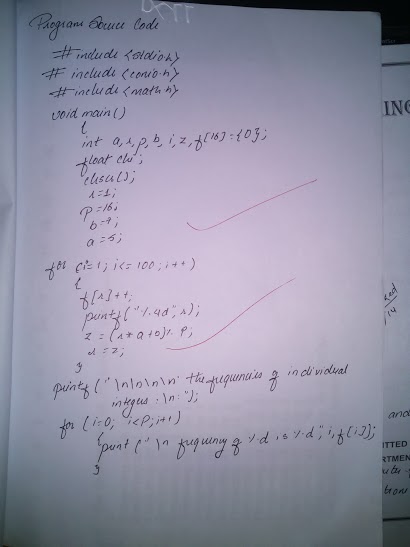 Program Source Code
# include <stdio.h>
# include <conio.h>
# include <math.h>
void main()
{
int a, r, p, b, i, z, f[16]={0};
float chi;
clrscr();
r=1;
p=16;
b=7;
a=5;
for (i=1; i<=100; i++)
{
f[r]++;
printf("%4d", r);
z = (r*a+b)% p;
r=z;
}
printf ("\n\n\n\n the frequencies of individual
integers :\n ");
for (i=0; i<p; i++)
{
print ("\n frequency of %d is %d", i, f[i]);
}
ING
and
ITTED
RTMEN